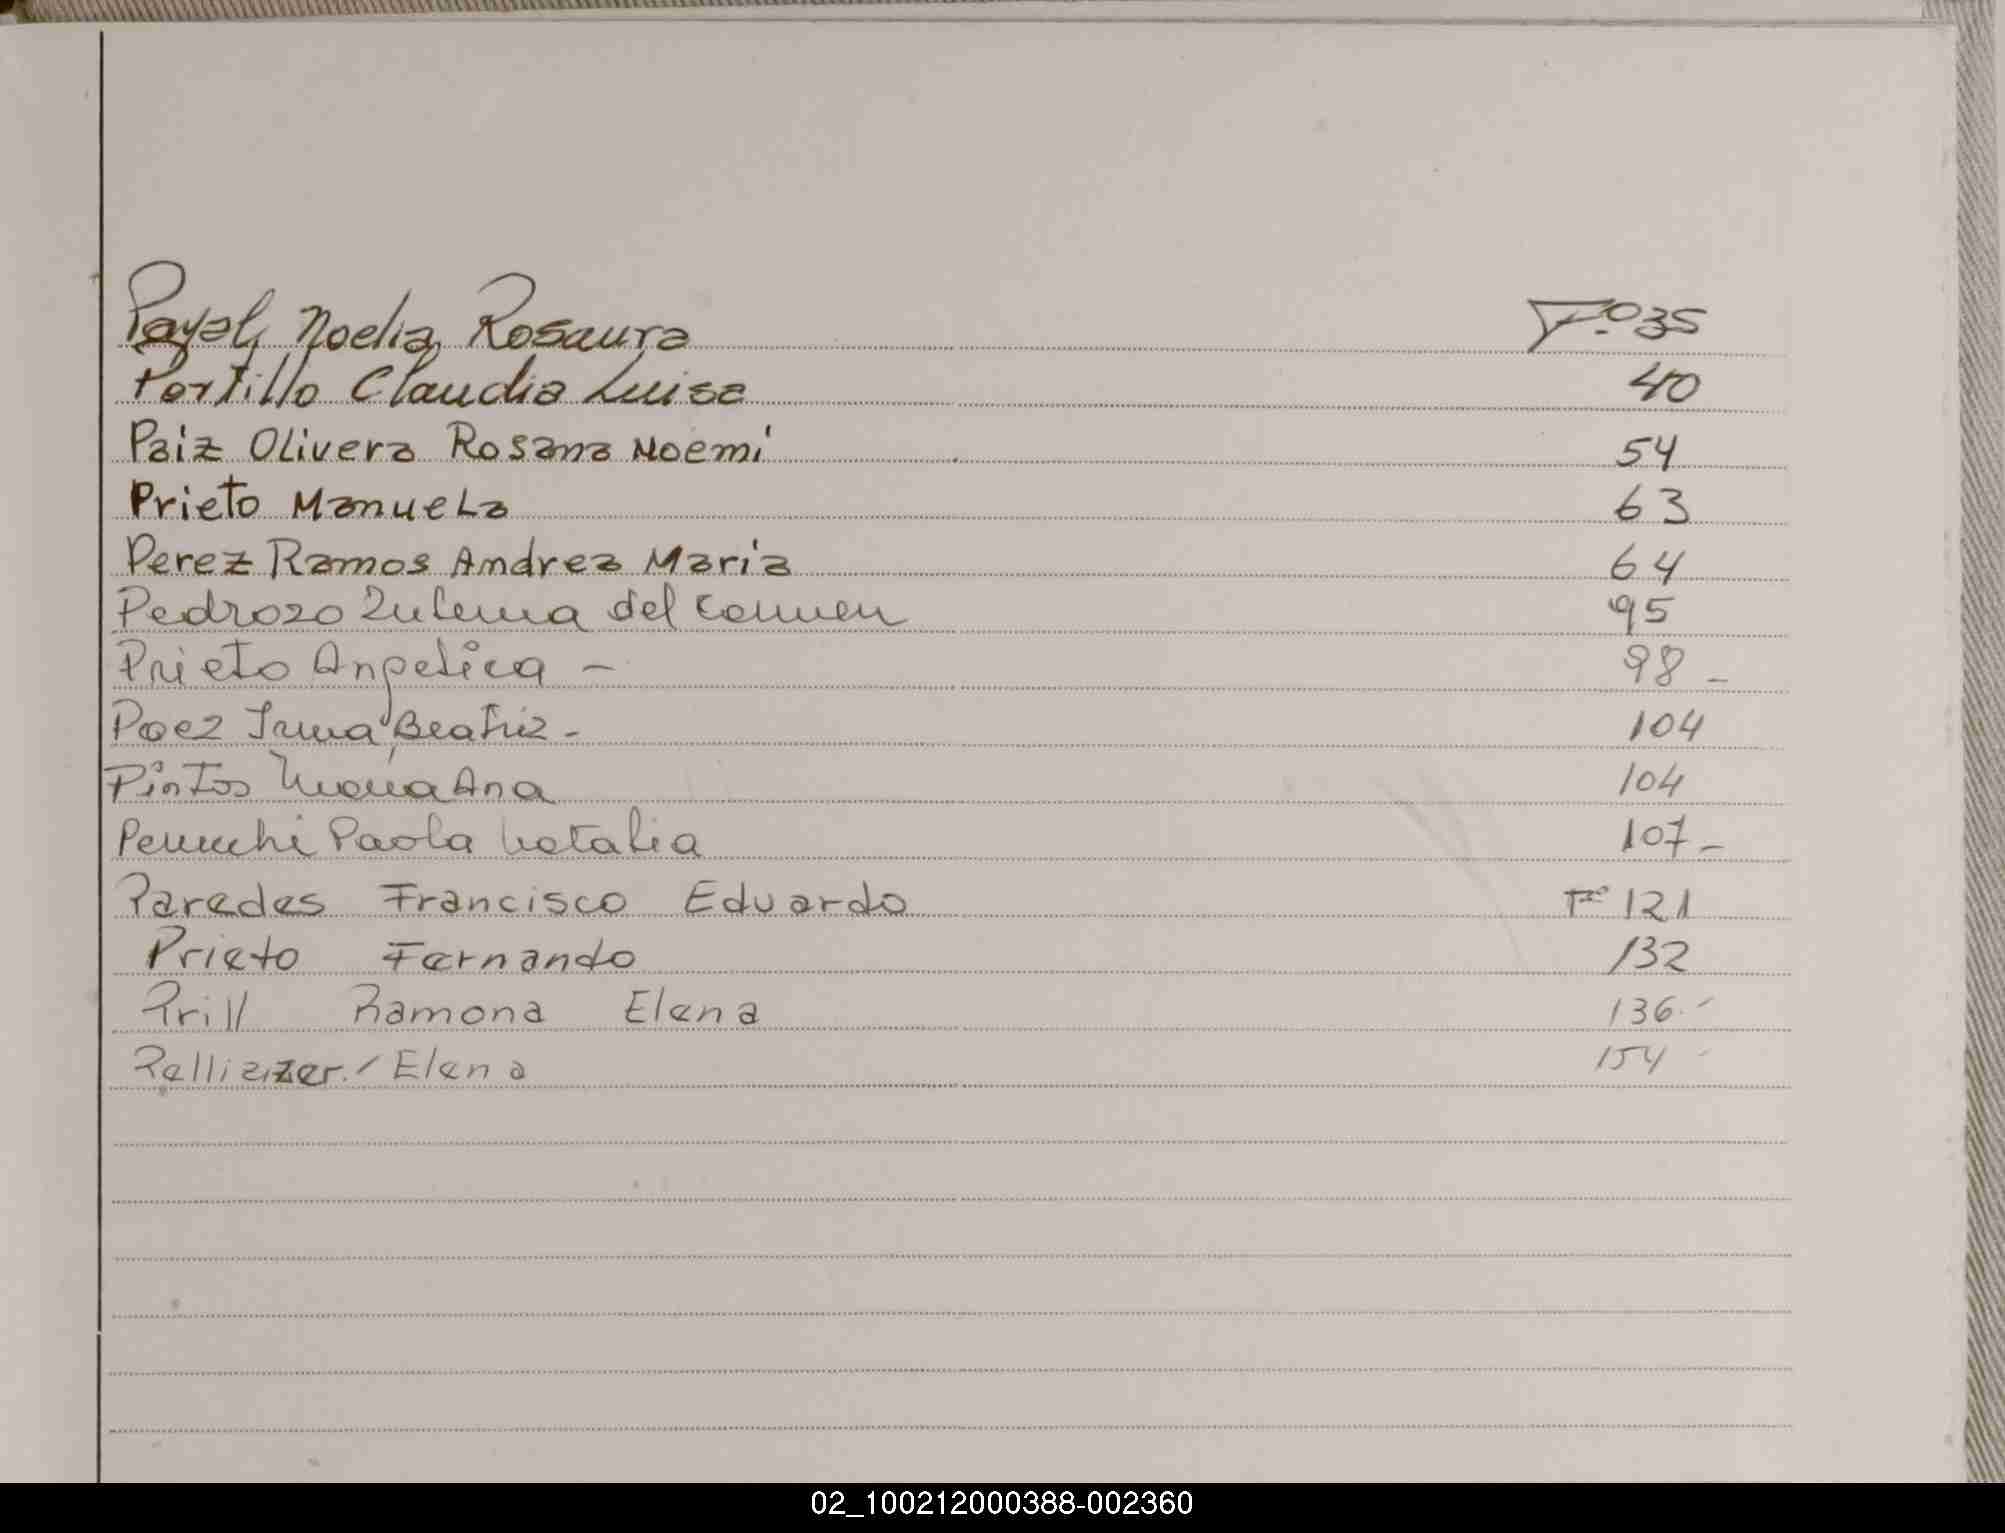 Noelia Rosaura Fº 35
Portillo Claudia Luisa 40
Paiz Olivera Rosana Noemi 54
Prieto Manuela 63
Perez Ramos Andrea Maria 64
Pedrozo Zulema del Carmen 95
Prieto Angelica - 98 -
Paez Irma Beatriz - 104
Pintos Maria Ana 104
Paola Natalia 107 -
Paredes Francisco Eduardo Fº 121
Prieto Fernando 132
Prill Ramona Elena 136.-
Elena 154 -
02_100212000388-002360